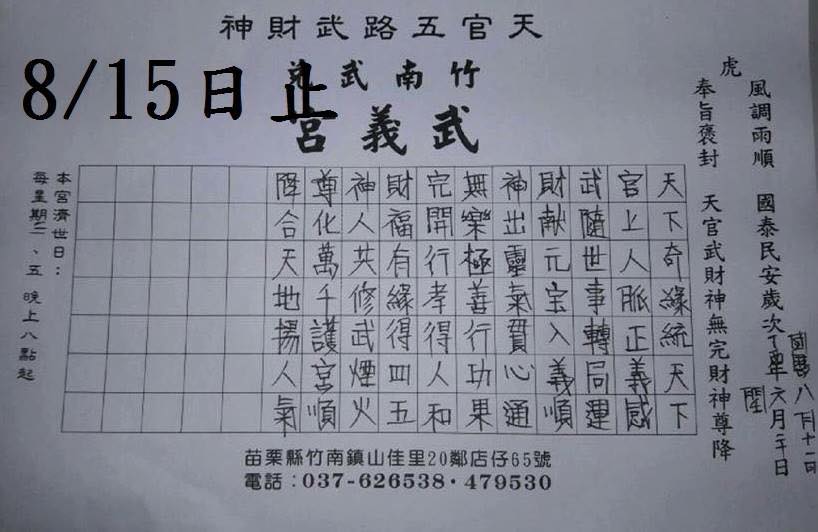 天官五路武財神
8/15日止
竹南武
武義宮
國曆八月十二日
風調雨順 國泰民安歲次丁酉年六月二十日
虎
奉旨褒封 天官武財神無完財神尊降
天下奇緣統天下
官上人脈正義感
武隨世事轉同運
財献元宝入義順
神出靈氣貫心通
無樂極善行功果
完開行孝得人和
財福有緣得四五
神人共修武煙火
尊化萬千護宮順
降合天地揚人氣
本宮濟世日：
每星期二、五 晚上八點起
苗栗縣竹南鎮山佳里20鄰店仔65號
電話：037-626538・479530